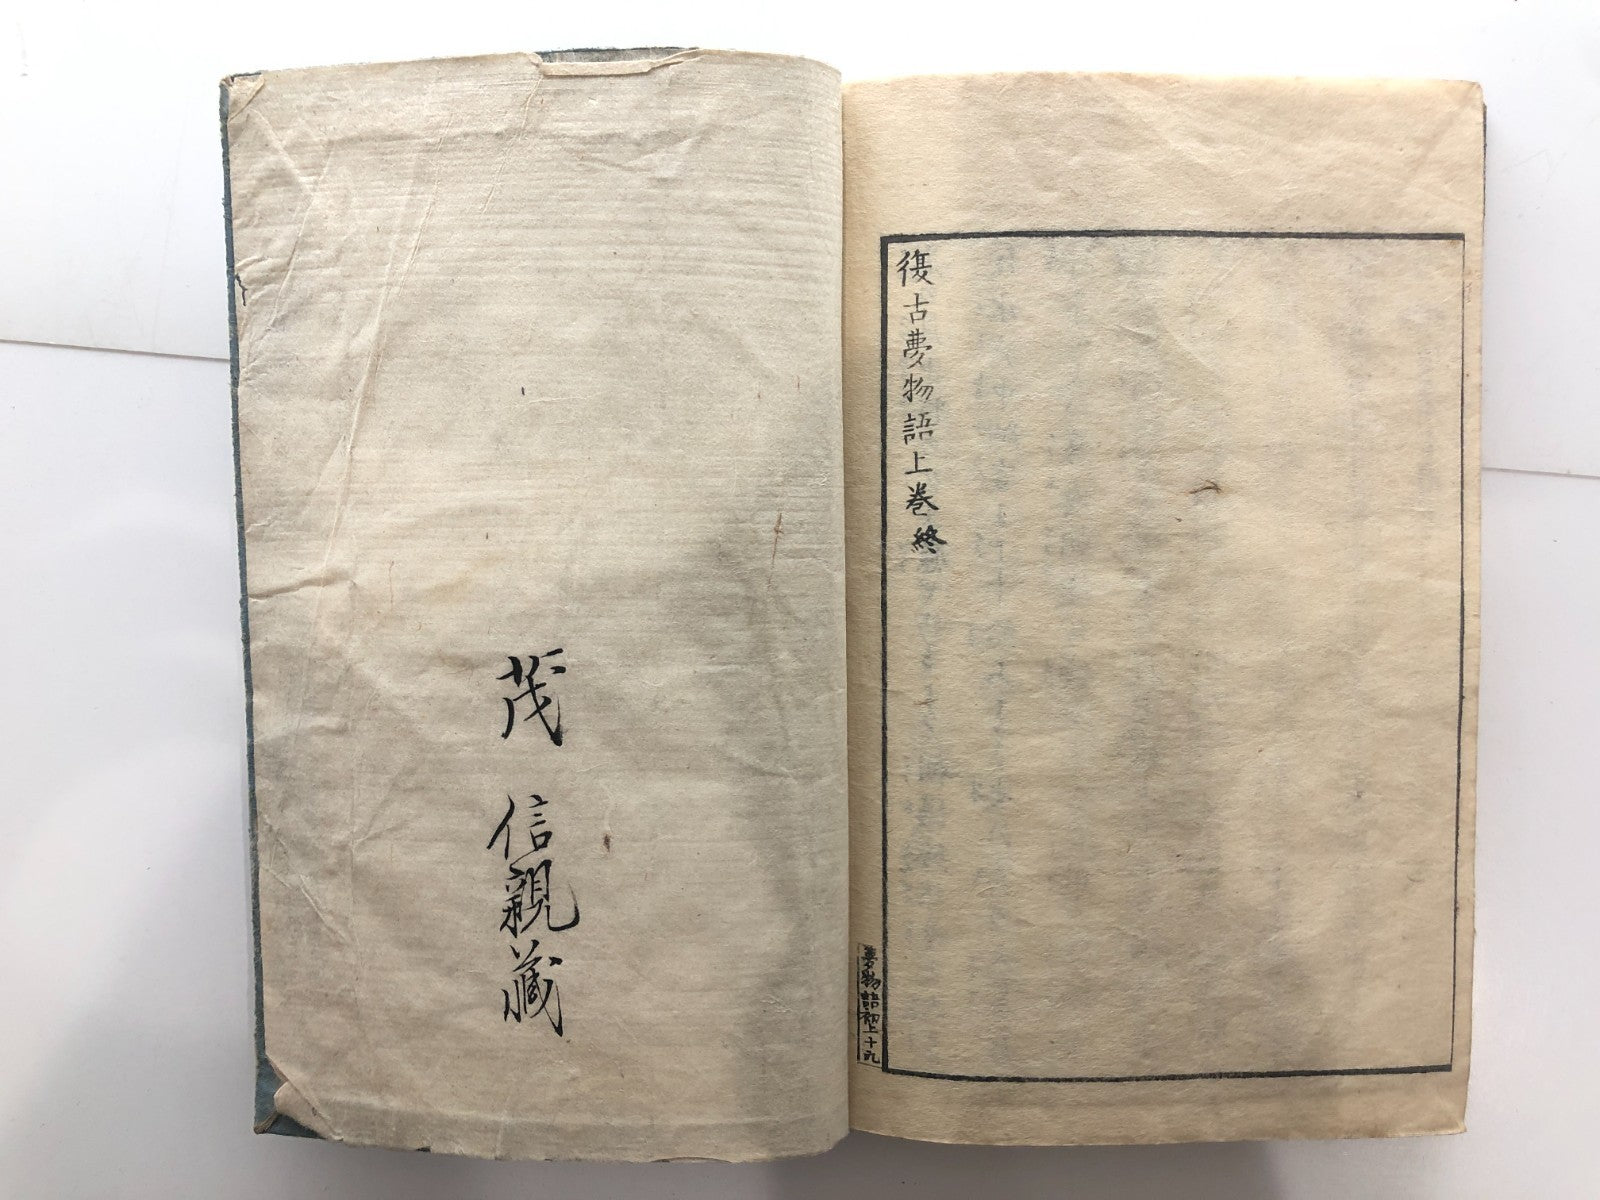 復古夢物語上巻終
夢物語初上 十九
茂 信親蔵